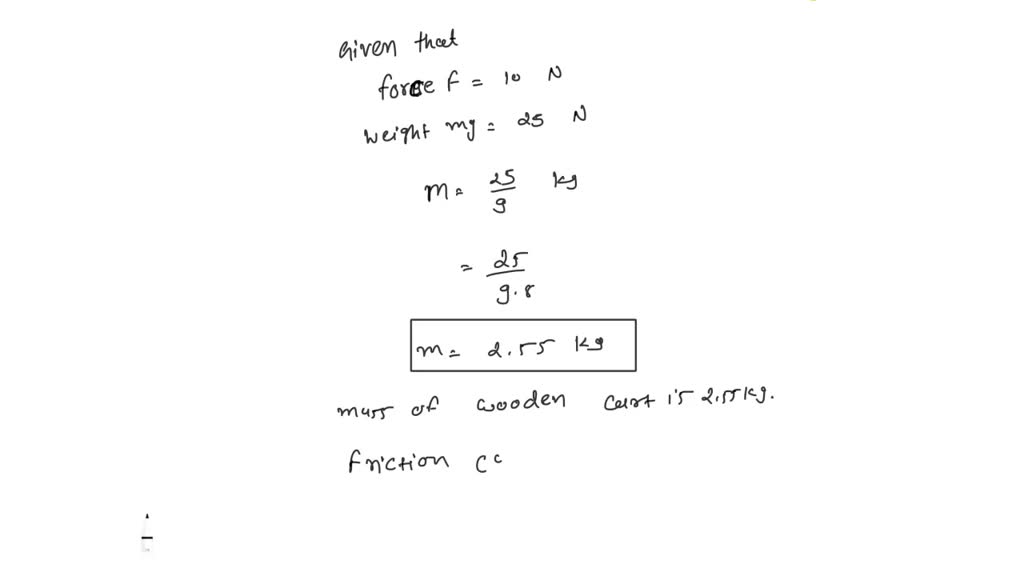 Given that
force F = 10 N
weight mg = 25 N
m = 25/g kg
= 25/9.8
m = 2.55 kg
mass of wooden cart is 2.55 kg.
friction cc